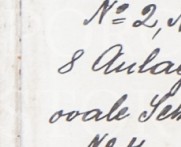 № 2,
8 Anlag
ovale Sch
№ 4